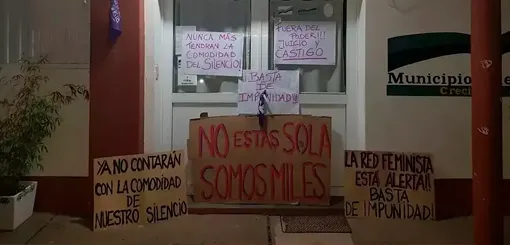 NUNCA MÁS
TENDRAN LA
COMODIDAD
DEL SILENCIO
FUERA DEL
PODER!!!
JUICIO Y
CASTIGO
BASTA
DE
IMPUNIDAD!!!
Municipio
Creci
NO ESTÁS SOLA
SOMOS MILES
YA NO CONTARÁN
CON LA COMODIDAD
DE
NUESTRO SILENCIO
LA RED FEMINISTA
ESTÁ ALERTA!!
BASTA
DE IMPUNIDAD!